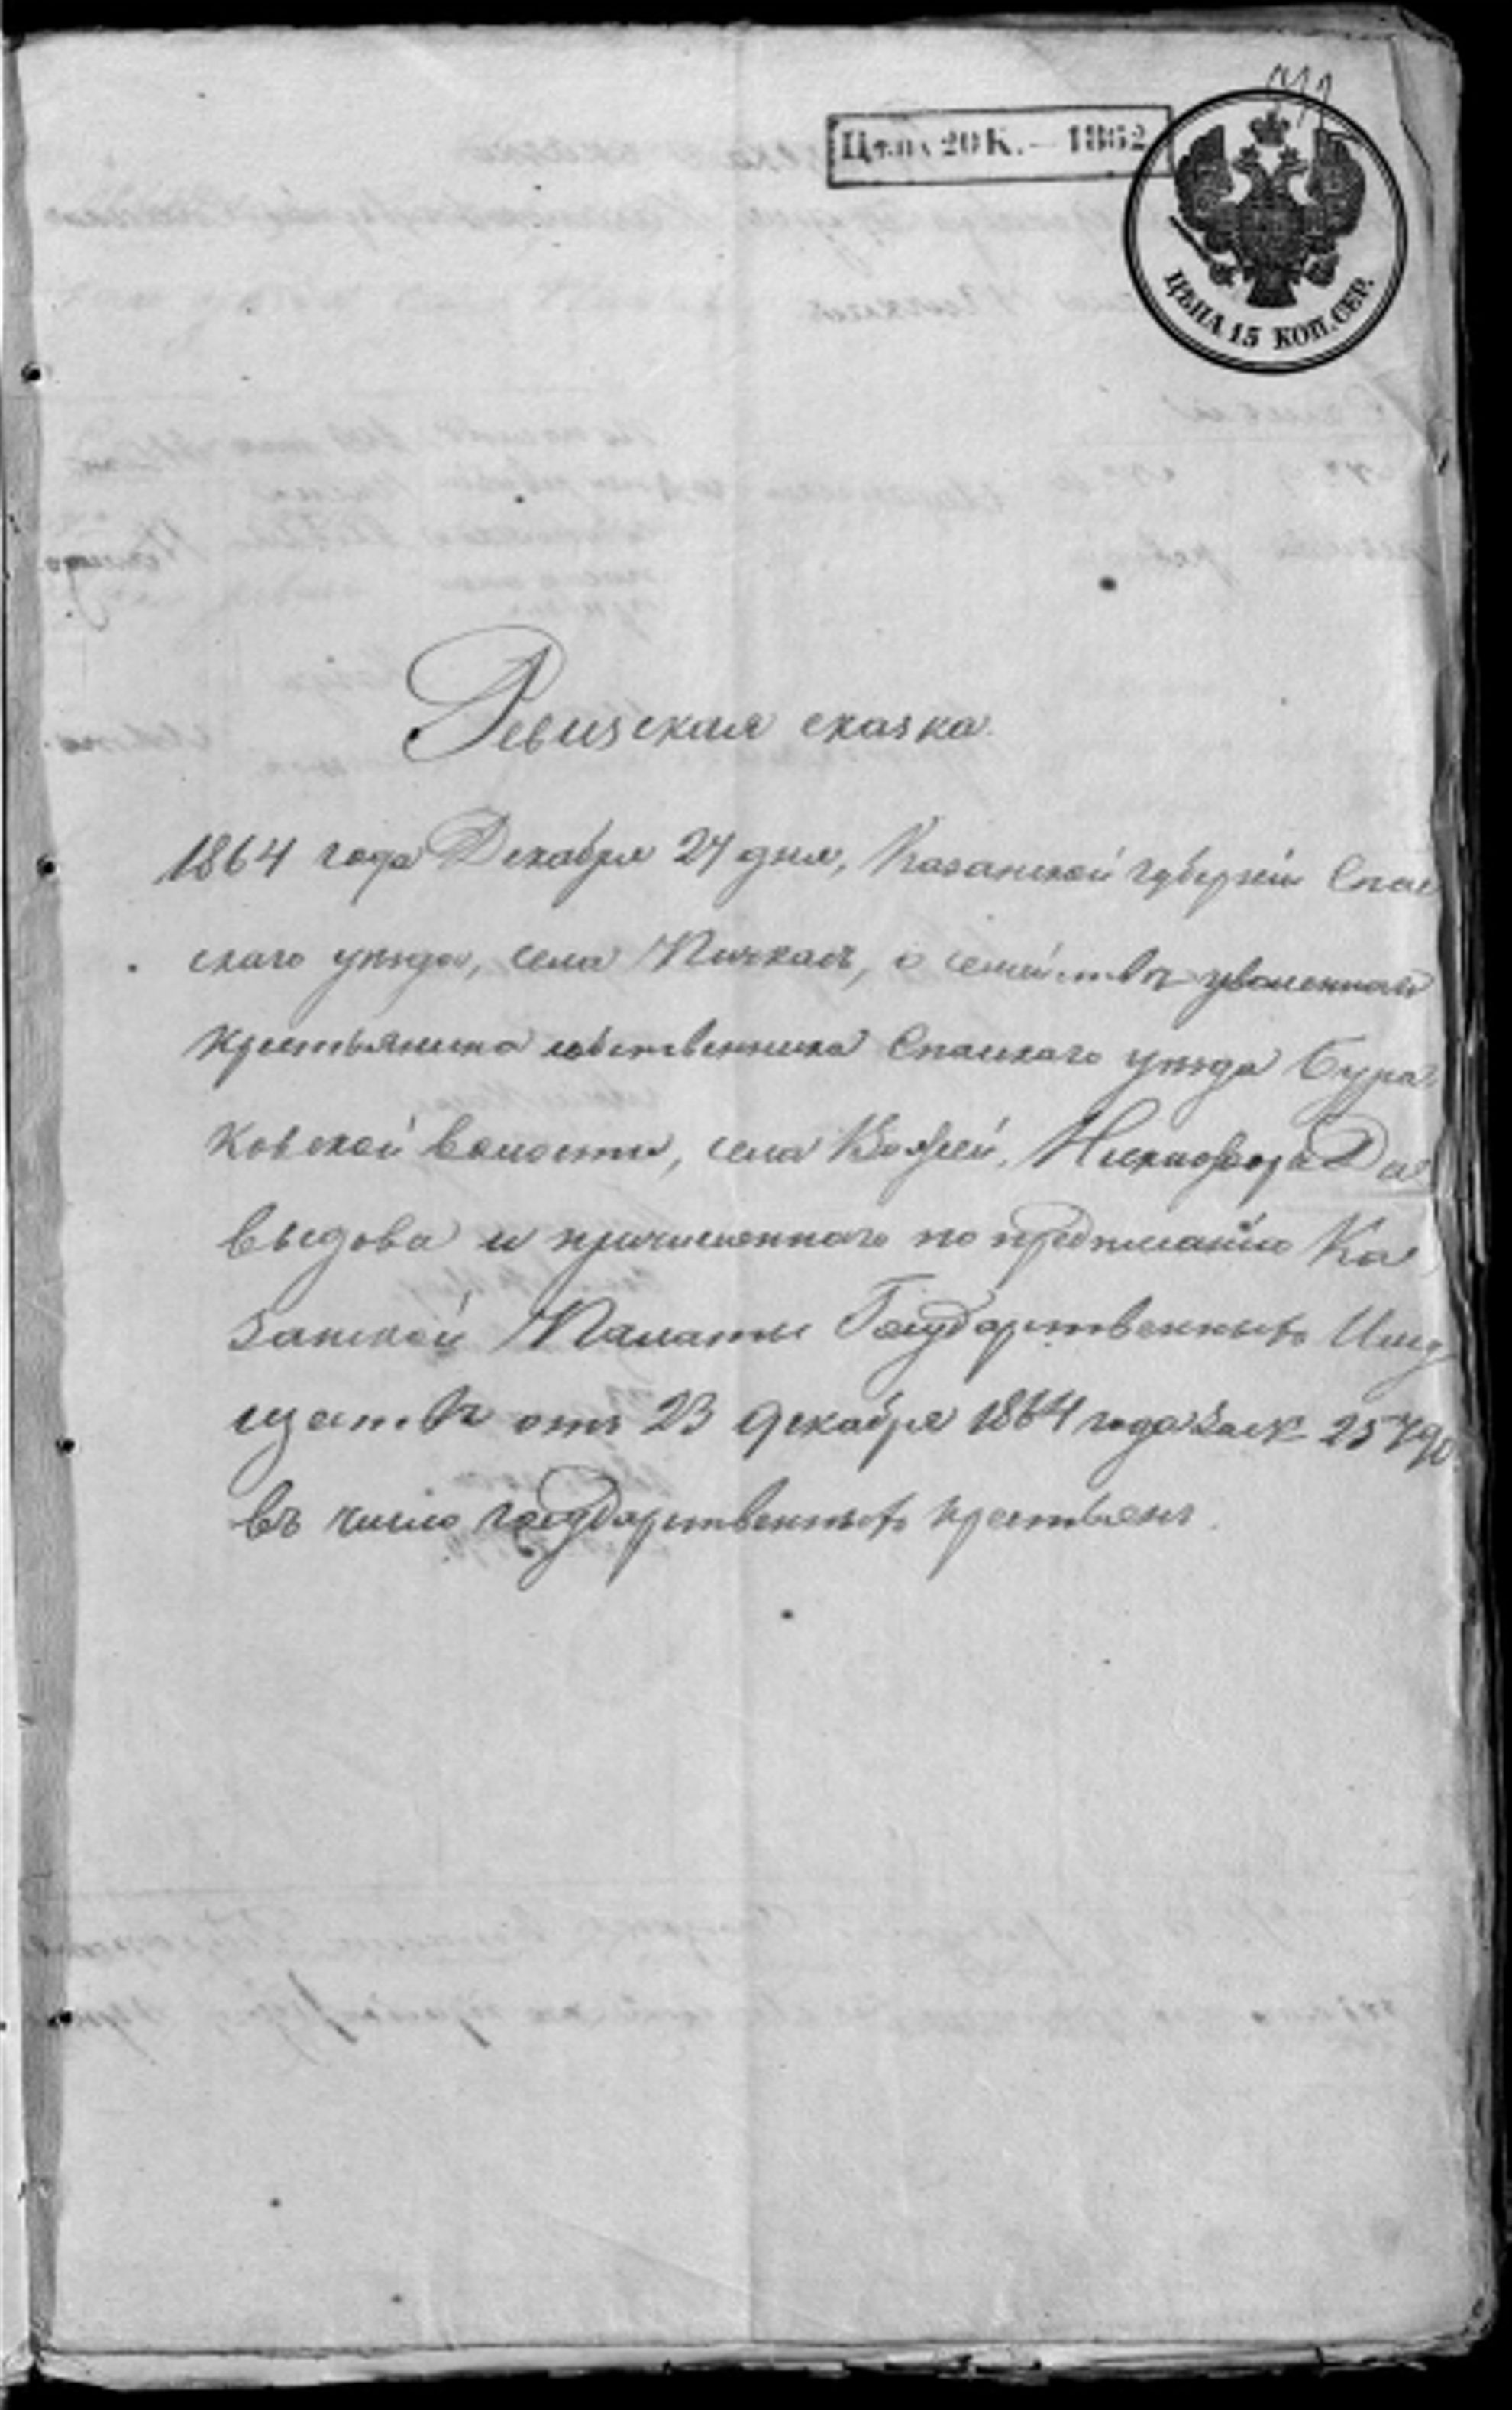 Цѣна 20 К. — 1862
ЦѢНА 15 КОП. СЕР.
Ревизская сказка.
1864 года Декабря 24 дня, Казанской губерніи Спас
скаго уѣзда, села Пичкасъ, о семействѣ уволеннаго
крестьянина собственника Спаскаго уѣзда Бура
ковской волости, села Никифора Да
выдова и причисленнаго по предписанію Ка
занской Палаты Государственныхъ Иму
ществъ отъ 23 декабря 1864 года за № 25790
въ число государственныхъ крестьянъ.